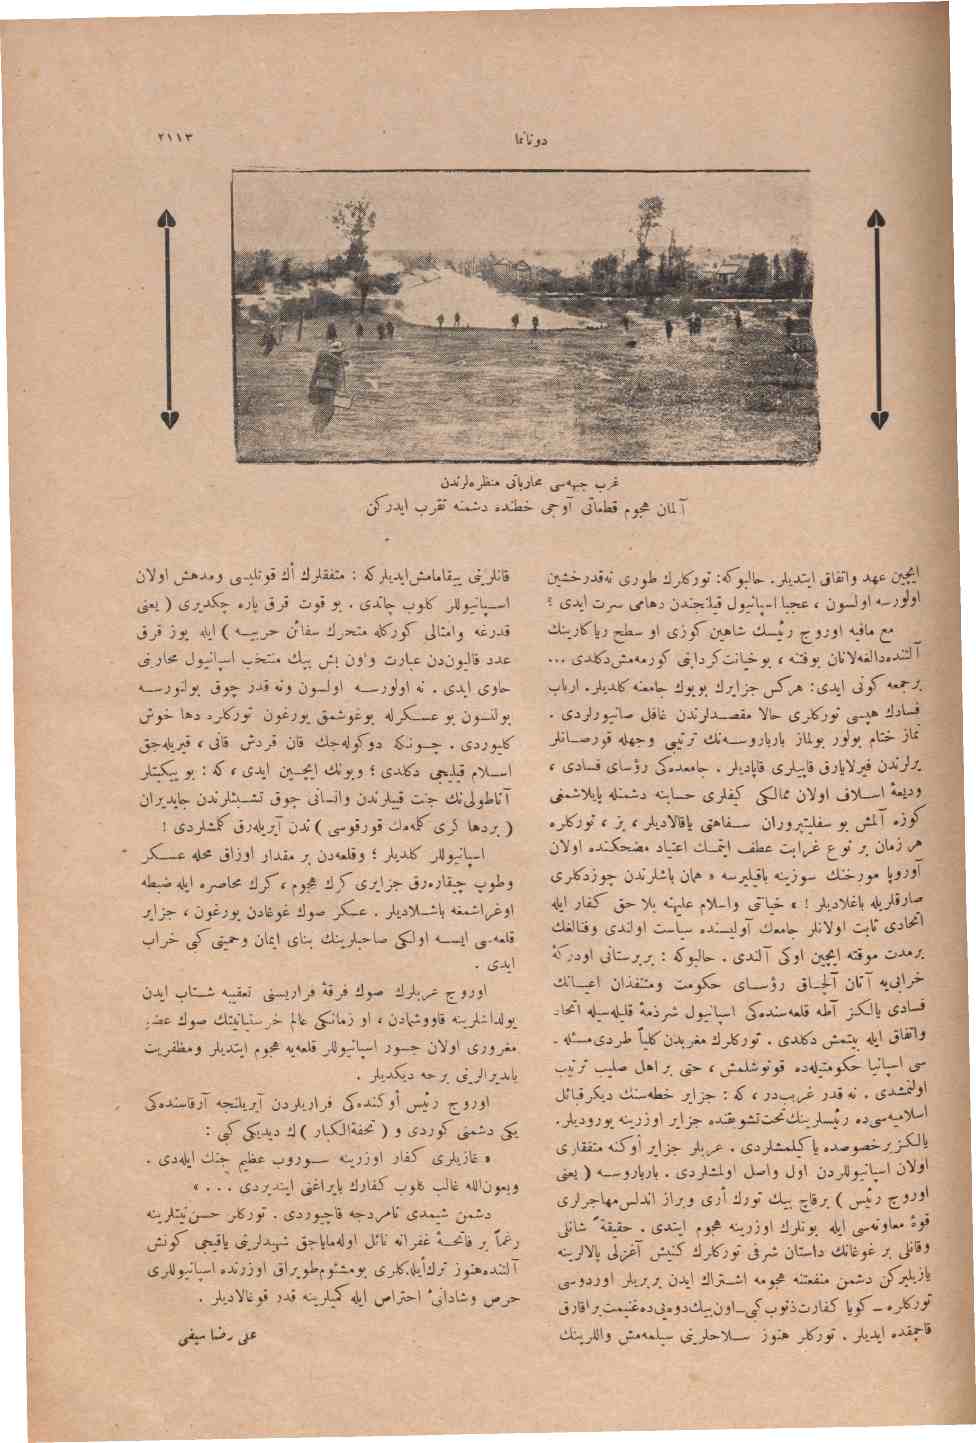 دوناما
٢١١٣
غرب جبهه‌سی محارباتی منظره‌لرندن
آلمان هجوم قطعاتی آوجی خطنده دشمنه تقرب ایدرکن
ایچین عهد واتفاق ایتدیلر. حالبوکه: تورکلرك طوری نه‌قدرخشین
اولورسه اولسون ، عجبا اسپانیول قیلنجندن دهامی سرت ایدی ؟
مع مافیه اوروج رئیسك شاهین کوزی او سطح ریاکارینك
آلتنده‌دالغه‌لانان بوفتنه ، بوخیانت کردابنی کورمه‌مش‌دکلدی ...
برجمعه کونی ایدی: هرکس جزایرك بویوك جامعنه کلدیلر. ارباب
فسادك هپسی تورکلری حالا مقصدلرندن غافل صانیورلردی .
نماز ختام بولور بولماز بارباروسه‌نك ترتیبی وجهله قورصانلر
یرلرندن فیرلایارق قاپیلری قاپادیلر. جامعده‌کی رؤسای فسادی ،
ودیعۀ اسلاف اولان ممالکی کیفلری حسابنه دشمنله پایلاشمغی
کوزه آلمش بو سفلیتپروران سفاهتی یاقالادیلر ، بز ، تورکلره
هر زمان بر نوع غرابت عطف ایتمك اعتیاد مضحکنده اولان
آوروپا مورخنك سوزینه باقیلیرسه « همان باشلرندن چوزدکلری
صارقلریله باغلادیلر ! » خیانتی واسلام علیهنه بلا حق کفار ایله
اتحادی ثابت اولانلر جامعك آولیسنده سیاست اولندی وفنالغك
برمدت موقته ایچین اوکی آلندی . حالبوکه : بربرستانی اودرکۀ
خرابی‌یه آتان آلچاق رؤسای حکومت ومتنفذان اعیانك
فسادی یالکز آطه قلعه‌سنده‌کی اسپانیول شرذمۀ قلیله‌سیله اتحاد
واتفاق ایله بیتمش دکلدی . تورکلرك مغربدن کلیاً طردی‌مسئله ـ
سی اسپانیا حکومتیله‌ده قونوشلمش ، حتی بر اهل صلیب ترتیب
اولنمشدی . نه قدر غریب‌در ، که : جزایر خطه‌سنك دیکرقبائل
اسلامیه‌سی‌ده رئیسلرینك‌تحت‌تشویقنده جزایر اوزرینه یورودیلر.
یالکزبرخصوصده یاکیلمشلردی . عربلر جزایر اوکنه متفقلری
اولان اسپانیوللردن اول واصل اولمشلردی . بارباروسه ( یعنی
اوروج رئیس ) برقاچ بیك تورك أری وبراز اندلس‌مهاجرلری
قوۀ معاونه‌سی ایله بونلرك اوزرینه هجوم ایتدی . حقیقةً شانلی
وقانلی بر غوغانك داستان شرفی تورکلرك کنیش آغزلی پالالرینه
یازیلیرکن دشمن منفعتنه هجومه اشتراك ایدن بربریلر اوردوسی
تورکلره ـ کویا کفارت‌ذنوب کبی ـ اون‌بیك‌دوه‌یی‌ده‌غنیمت‌براقارق
قاچمقده ایدیلر . تورکلر هنوز سلاحلرینی سیلمه‌مش واللرینك
قانلرینی ییقامامش‌ایدیلرکه : متفقلرك أك قوتلیسی ومدهش اولان
اسپانیوللر کلوب چاتدی . بو قوت قرق پاره چکدیری ( یعنی
قدرغه وامثالی کورکله متحرك سفائن حربیه ) ایله یوز قرق
عدد قالیون‌دن عبارت واون بش بیك منتخب اسپانیول محاربنی
حاوی ایدی . نه اولورسه اولسون ونه قدر چوق بولنورسه
بولنسون بو عسکرله بوغوشمق یورغون تورکلره دها خوش
کلیوردی . چونکه دوکوله‌جك قان قردش قانی ، قیریله‌جق
اسلام قیلیجی دکلدی ؛ وبونك ایچین ایدی ، که : بو ییکیتلر
آناطولی‌نك جنت قییلرندن وانسانی چوق تشبثلرندن جایدیران
( بردها کری کله‌مه‌مك قورقوسی ) ندن آیریله‌رق کلمشلردی !
اسپانیوللر کلدیلر ؛ وقلعه‌دن بر مقدار اوزاق محله عسکر
وطوپ چیقاره‌رق جزایری کرك هجوم ، کرك محاصره ایله ضبطه
اوغراشمغه باشلادیلر . عسکر صوك غوغادن یورغون ، جزایر
قلعه‌سی ایسه اولکی صاحبلرینك بنای ایمان وحمیتی کبی خراب
ایدی .
اوروج عربلرك صوك فرقۀ فراریسنی تعقیبه شتاب ایدن
یولداشلرینه قاووشمادن ، او زمانکی عالم خرستیانیتك صوك عضو
مغروری اولان جسور اسپانیوللر قلعه‌یه هجوم ایتدیلر ومظفریت
بایدیرالرینی برجه دیکدیلر .
اوروج رئیس أوکنده‌کی فراریلردن آیریلنجه آرقاسنده‌کی
یکی دشمنی کوردی و ( تحفةالکبار ) ك دیدیکی کبی :
« غازیلری کفار اوزرینه سوروب عظیم جنك ایله‌دی .
وبعون‌الله غالب کلوب کفارك بایراغنی ایندیردی . . . »
دشمن شیمدی نامردجه قاچیوردی . تورکلر حسن‌نیتلرینه
رغماً بر فاتحۀ غفرانه نائل اوله‌مایاجق شهیدلرینی یاقیجی کونش
آلتنده‌هنوز ترك‌ایله‌دکلری بومشئوم‌طوپراق اوزرنده اسپانیوللری
حرص وشادانیٔ احتراص ایله کمیلرینه قدر قوغالادیلر .
علی رضا سیفی